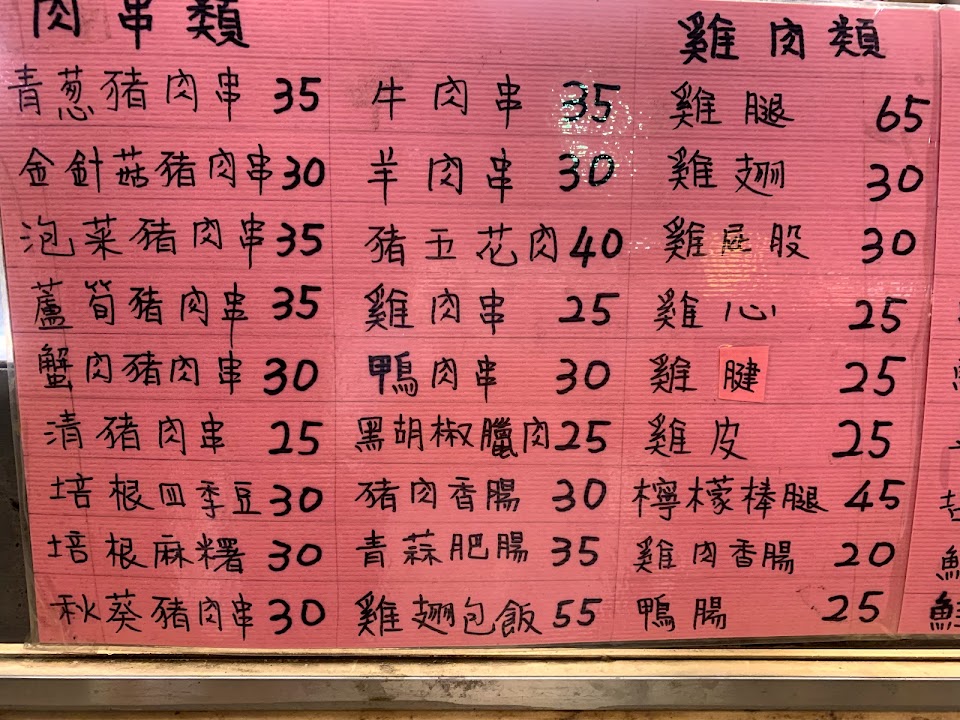 肉串類
青葱豬肉串 35
金針菇豬肉串 30
泡菜豬肉串 35
蘆筍豬肉串 35
蟹肉豬肉串 30
清豬肉串 25
培根四季豆 30
培根麻糬 30
秋葵豬肉串 30
牛肉串 35
羊肉串 30
豬五花肉 40
雞肉串 25
鴨肉串 30
黑胡椒臘肉 25
豬肉香腸 30
青蒜肥腸 35
雞翅包飯 55
雞肉類
雞腿 65
雞翅 30
雞屁股 30
雞心 25
雞腱 25
雞皮 25
檸檬棒腿 45
雞肉香腸 20
鴨腸 25